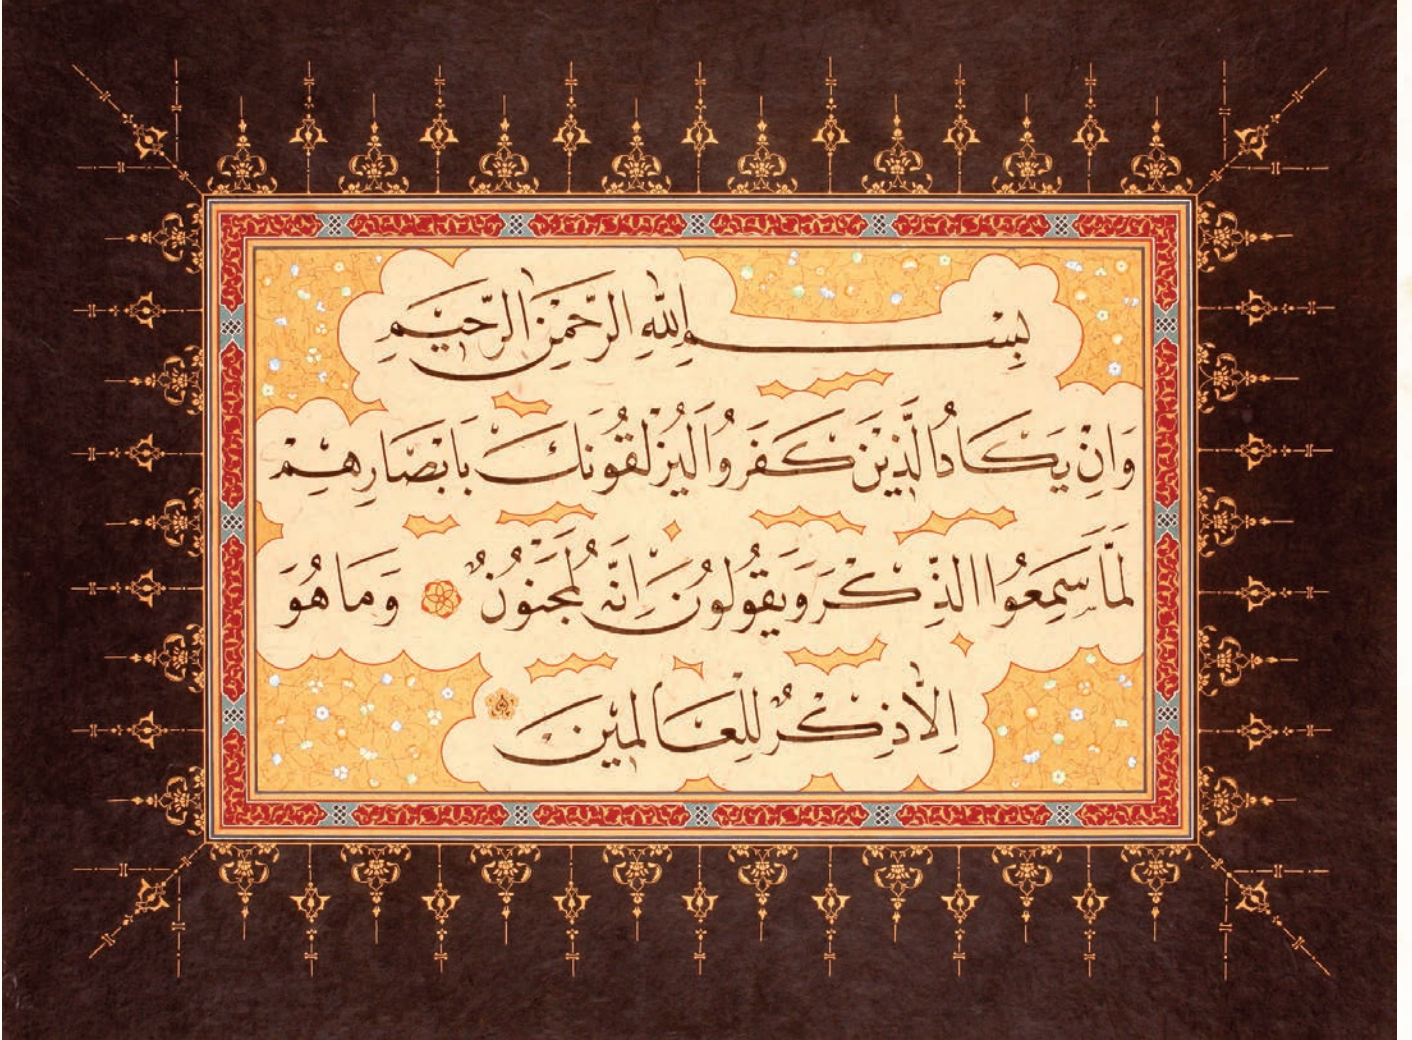 بِسْمِ اللهِ الرَّحْمٰنِ الرَّحِيْمِ
وَاِنْ يَكَادُ الَّذِيْنَ كَفَرُوا لَيُزْلِقُونَكَ بِاَبْصَارِهِمْ
لَمَّا سَمِعُوا الذِّكْرَ وَيَقُولُونَ اِنَّهُ لَمَجْنُونٌ وَمَا هُوَ
اِلَّا ذِكْرٌ لِلْعَالَمِينَ